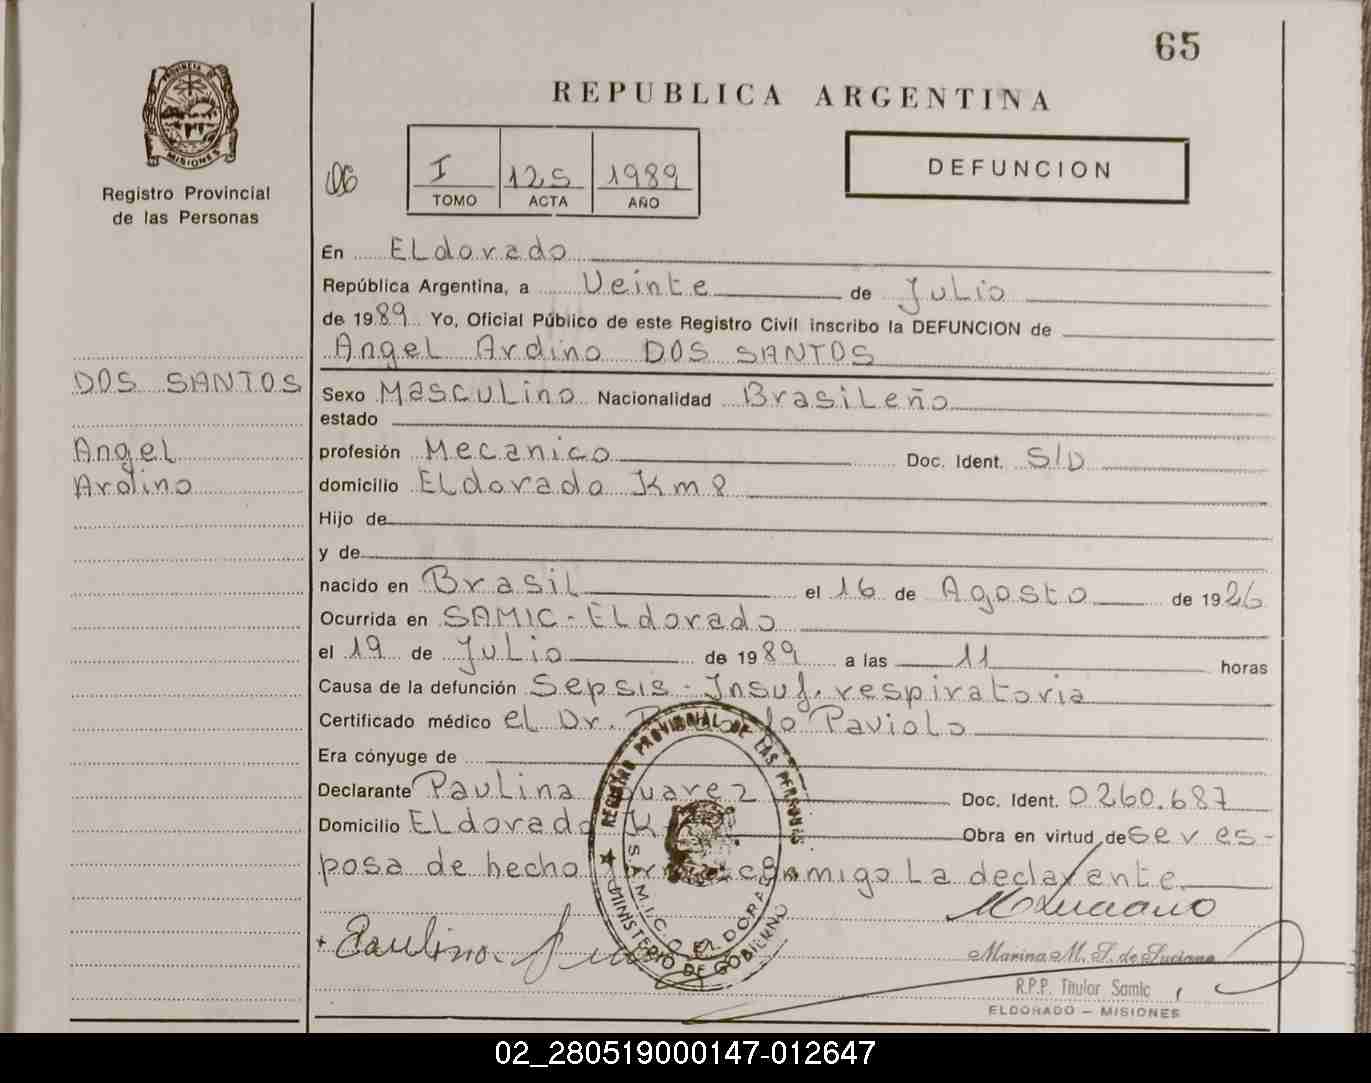 65
REPUBLICA ARGENTINA
PROVINCIA DE
MISIONES
Registro Provincial
de las Personas
I 125 1989
TOMO ACTA AÑO
DEFUNCION
En ELdorado
República Argentina, a Veinte de JuLio
de 1989 Yo, Oficial Público de este Registro Civil inscribo la DEFUNCION de
AngeL Ardino DOS SANTOS
DOS SANTOS
AngeL
Ardino
Sexo MascuLino Nacionalidad BrasiLeño
estado
profesión Mecanico Doc. Ident. S/D
domicilio ELdorado Km 8
Hijo de
y de
nacido en BrasiL el 16 de Agosto de 1926
Ocurrida en SAMIC - ELdorado
el 19 de JuLio de 1989 a las 11 horas
Causa de la defunción Sepsis - Insuf. respiratoria
Certificado médico eL Dr. PavioLo
Era cónyuge de
Declarante PauLina Doc. Ident. 0260.687
Domicilio ELdorado Obra en virtud de ser es-
posa de hecho conmigo La decLarante
REGISTRO PROVINCIAL DE LAS PERSONAS
S.A.M.I.C. ELDORADO
MINISTERIO DE GOBIERNO
Marina M. S. de Luciano
R.P.P. Titular Samic
ELDORADO — MISIONES
02_280519000147-012647